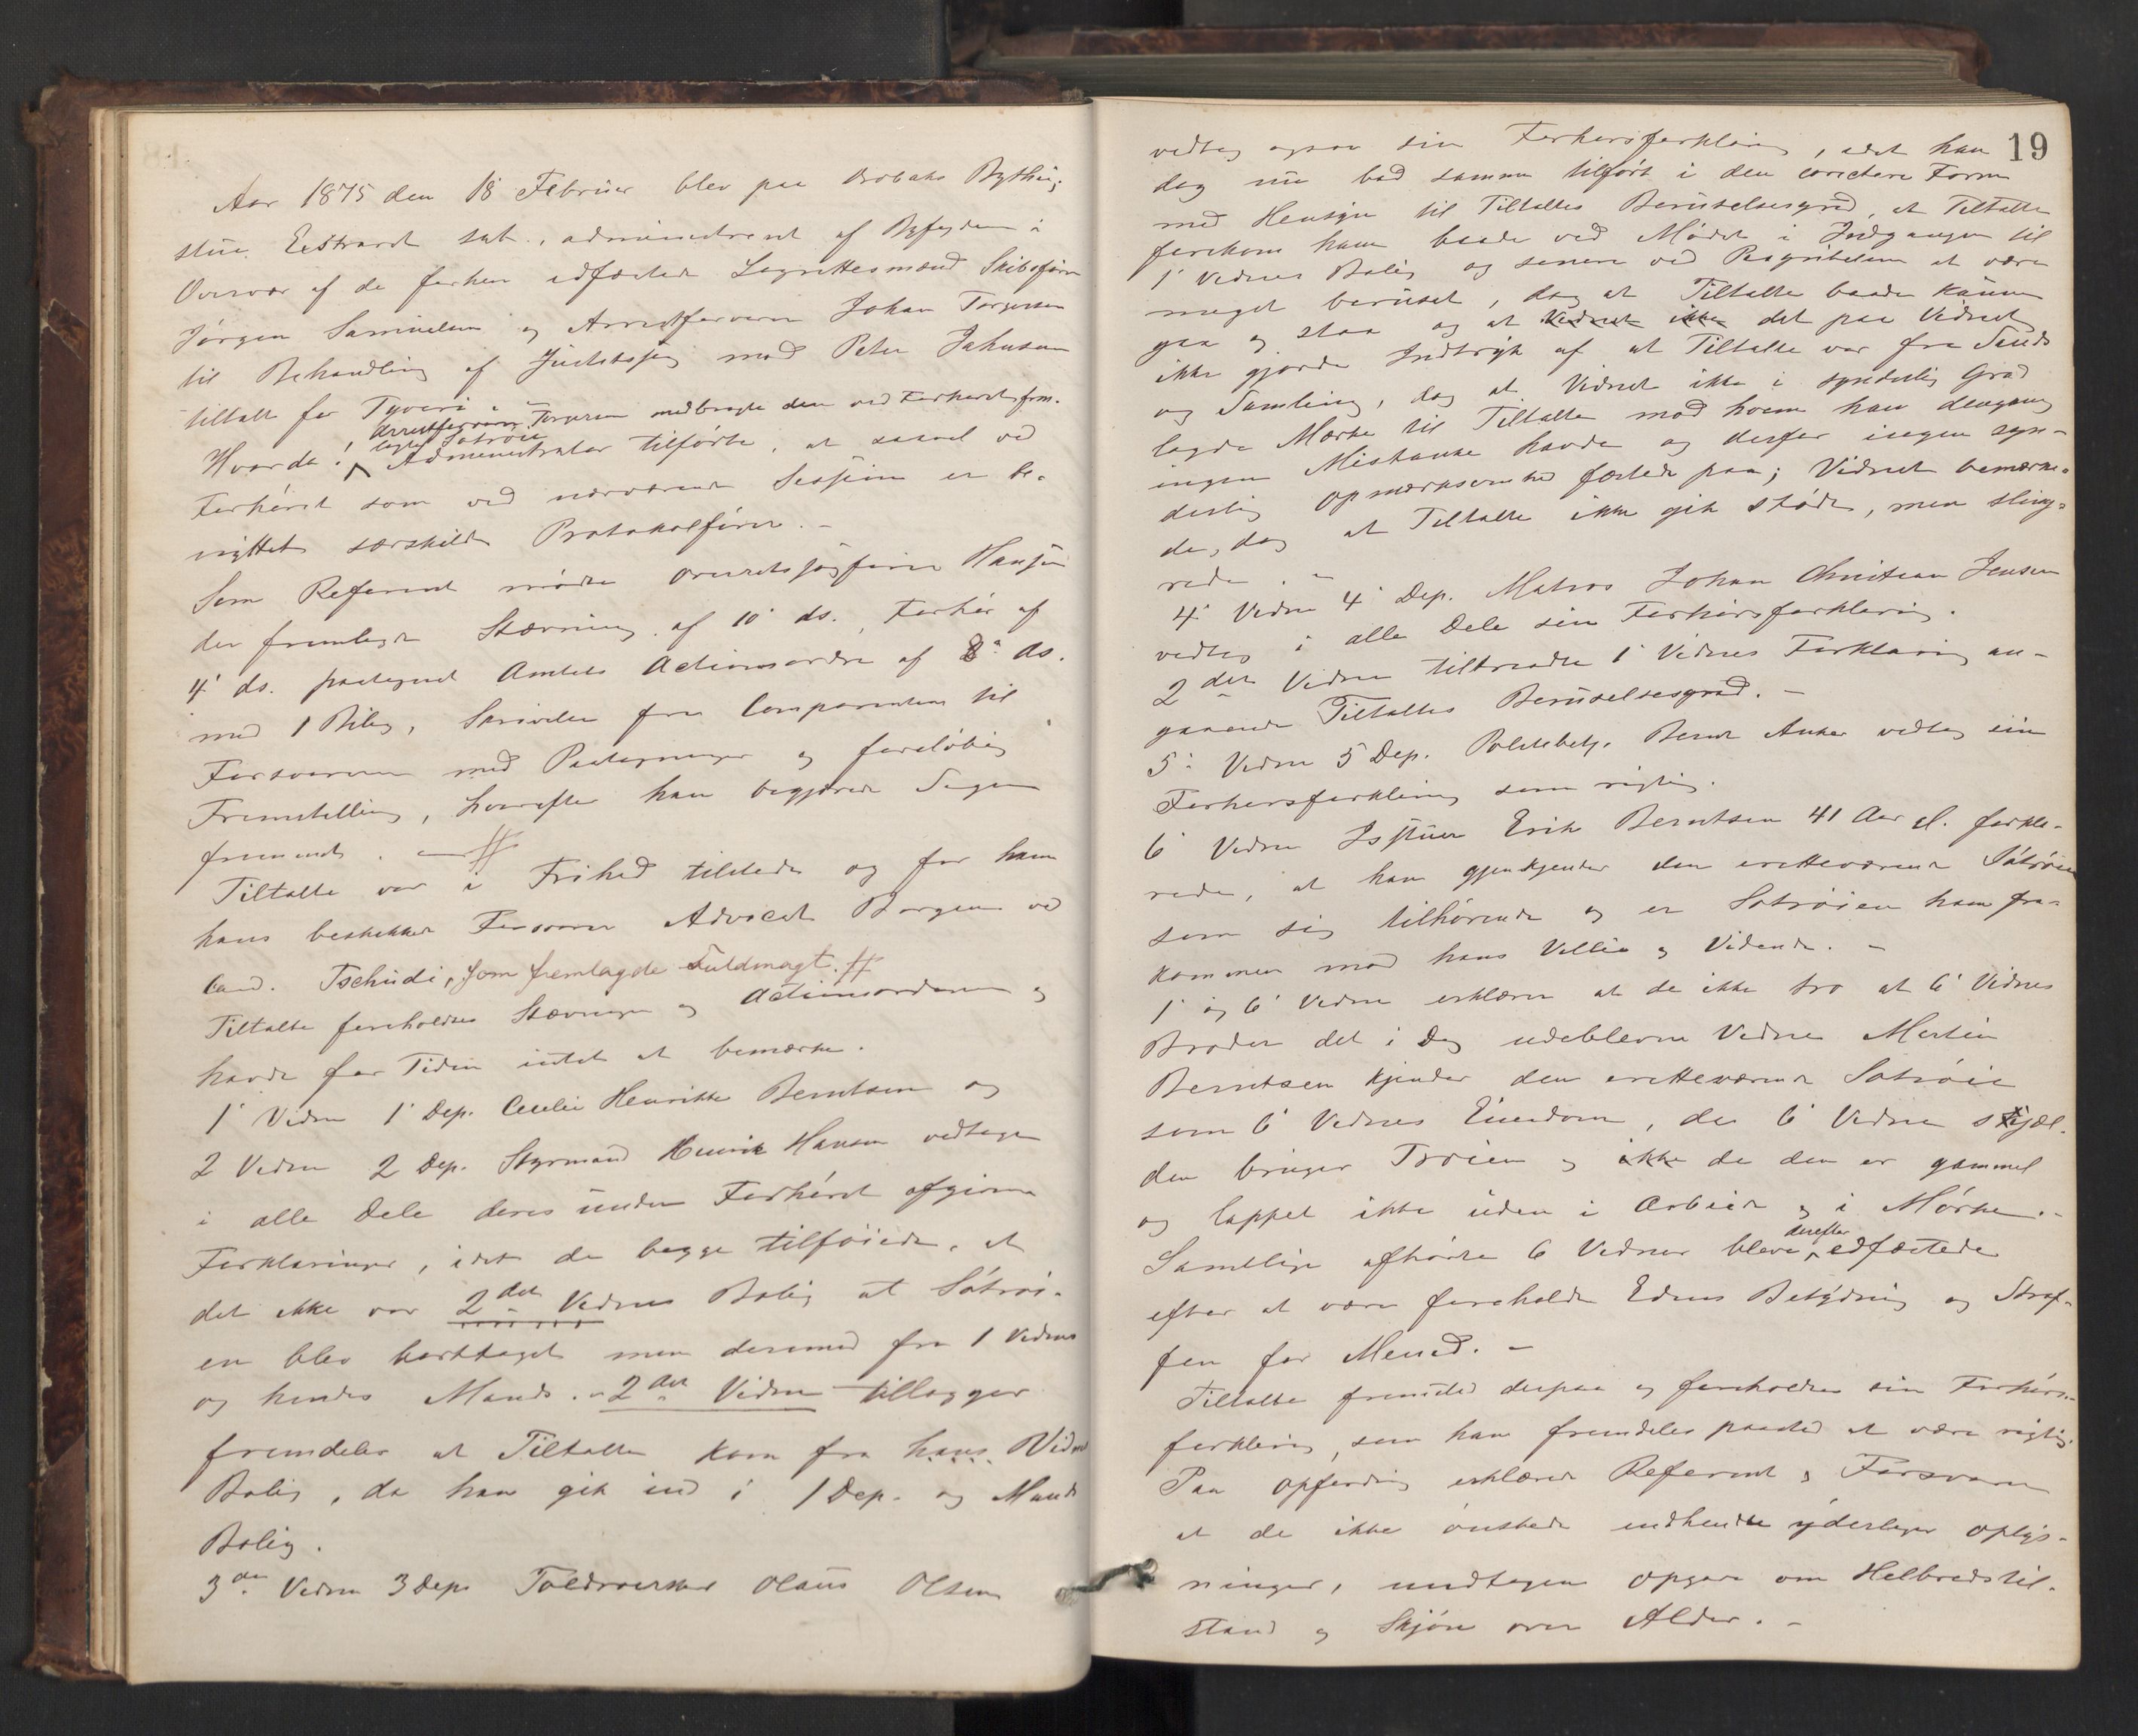 Aar 1875 den 18 Februar blev paa Drøbaks Bything-
stue Extraret sat, administreret af Byfogden i
Overvær af de forhen edfæstede Lagrettesmænd Skibsfører
Jørgen Samuelsen og Arrestforvarer Johan Torgersen
til Behandling af Justitssag mod Peter Johnsen
tiltalt for Tyveri. –
Arrestforvarer Torgersen medbragte den ved Forhøret frem-
lagte Sotrøie
Hvorda! Administrator tilførte, at saavel ved
Forhøret som ved nærværende Session er be-
nyttet særskilt Protokolfører. –
Som Referent mødte Overretssagfører Hansen
der fremlagde Stævning af 10 ds., Forhør af
4 ds. paategnet Amtets Actionsordre af 8 ds.
med 1 Bilag, Skrivelse fra Comparenten til
Forsvareren med Paategninger og foreløbig
Fremstilling, hvorefter han begjærede Sagen
fremmet. – #
Tiltalte var i Frihed tilstede og for ham
hans beskikkede Forsvarer Advocat Borgen ved
Cand. Tschudi, som fremlagde Fuldmagt. #
Tiltalte foreholdtes Stævningen og Actionsordren og
havde for Tiden intet at bemærke.
1 Vidne 1 Dep. Cecilie Henrikke Berntsen og
2 Vidne 2 Dep. Styrmand Henrik Hansen vedtage
i alle Dele deres under Forhøret afgivne
Forklaringer, idet de begge tilføiede, at
det ikke var 2det Vidnes Bolig at Sotrøi-
en blev borttaget men derimod fra 1 Vidnes
og hendes Mands. – 2det Vidne tillægger
fremdeles at Tiltalte kom fra hans Vidnets
Bolig, da han gik ind i 1 Dep. og Mands
Bolig.
3de Vidne 3 Dep. Toldroerskar Olaus Olsen
19
vedtog ogsaa sin Forhørsforklaring, idet han
dog nu bad samme tilført i den correctere Form
med Hensyn til Tiltaltes Beruselsesgrad, at Tiltalte
forekom ham baade ved Mødet i Indgangen til
1 Vidnes Bolig og senere ved Paagribelsen at være
meget beruset, dog at Tiltalte baade kunne
gaa og staa og at Vidnet ikke det paa Vidnet
ikke gjorde Indtryk af at Tiltalte var fra Sands
og Samling, dog at Vidnet ikke i synderlig Grad
lagde Mærke til Tiltalte mod hvem han dengang
ingen Mistanke havde og derfor ingen syn-
derlig Opmærksomhed fæstede paa; Vidnet bemærke-
de, dog at Tiltalte ikke gik stødt, men sling-
rede. –
4 Vidne 4 Dep. Matros Johan Christian Jensen
vedtog i alle Dele sin Forhørsforklaring.
2det Vidne tiltraadte 1 Vidnes Forklaring an-
gaaende Tiltaltes Beruselsesgrad. –
5 Vidne 5 Dep. Politibetj. Bernt Anker vedtog sin
Forhørsforklaring som rigtig.
6 Vidne Erik Berntsen 41 Aar gl. forkla-
rede, at han gjenkjender den iretteværende Sotrøie
som sig tilhørende og er Sotrøien ham fra-
kommen mod hans Villie og Vidende. –
1 og 6 Vidne erklærer at de ikke tro at 6 Vidnes
Broder det i Dag udeblevne Vidne Martin
Berntsen kjender den iretteværende Sotrøie
som 6 Vidnes Eiendom, da 6 Vidne sjæl-
den bruger Trøien og ikke da den er gammel
og lappet ikke uden i Arbeide og i Mørke. –
Samtlige afhørte 6 Vidner bleve derefter edfæstede
efter at være foreholdt Edens Betydning og Straf-
fen for Mened. –
Tiltalte fremstod derpaa og foreholdtes sin Forhørs-
forklaring, som han fremdeles paastod at være rigtig.
Paa Opfordring erklærede Referent og Forsvarer
at de ikke ønskede indhentet yderligere Oplys-
ninger, undtagen Opgave om Helbredstil-
stand og Skjøn over Alder. –